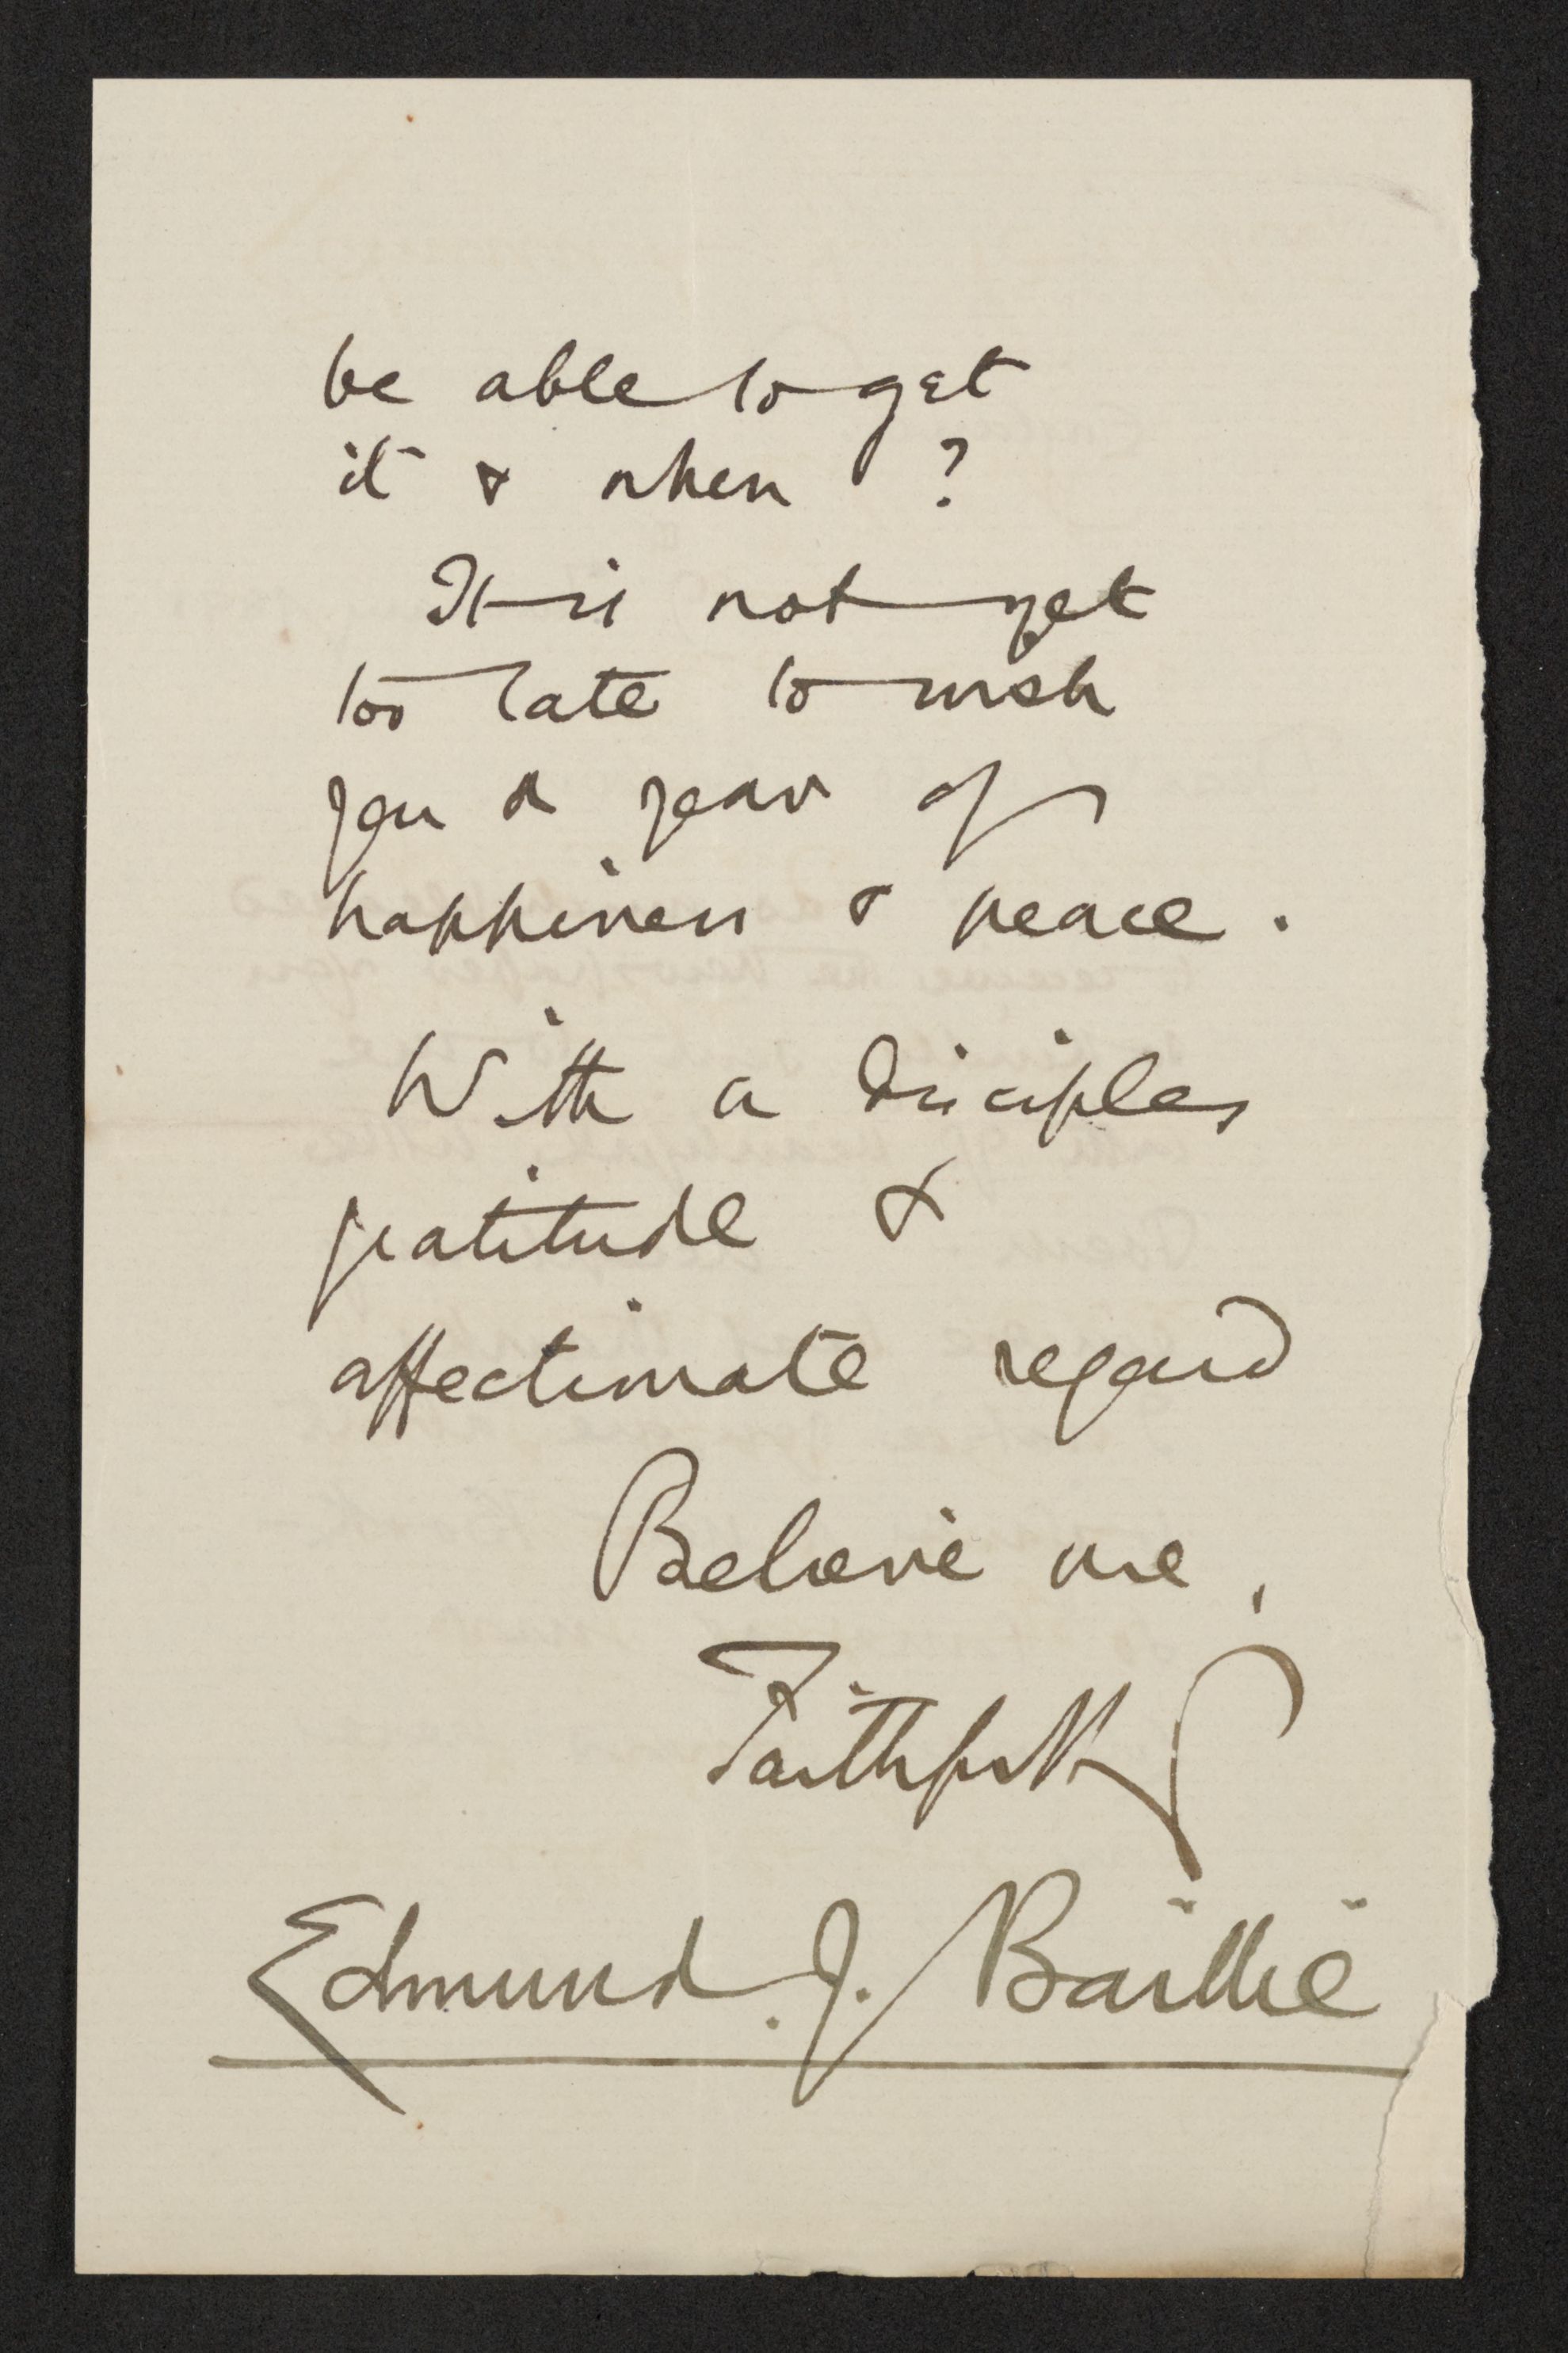 be able to get
it & when ?
It is not yet
too late to wish
you a year of
happiness & peace .
With a disciples
gratitude &
affectionate regard
Believe me ,
Faithfully
Edmund . J. Baillie